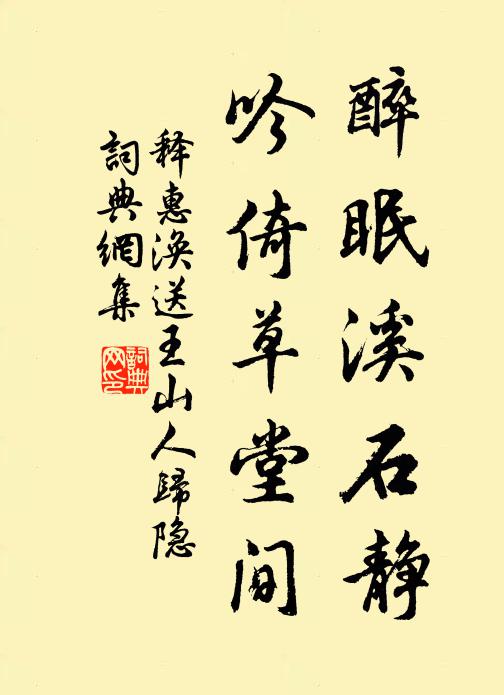 醉眠溪石静
吟倚草堂间
释惠涣送王山人歸隐
詞典網集
詞典网印